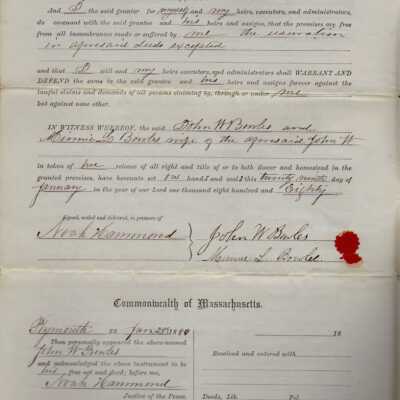 And I the said grantor for myself and my heirs, executors, and administrators,
do covenant with the said grantee and his heirs and assigns, that the premises are free
from all incumbrances made or suffered by me the reservation
in aforesaid deeds excepted
and that I will and my heirs, executors, and administrators shall WARRANT AND
DEFEND the same to the said grantee and his heirs and assigns forever against the
lawful claims and demands of all persons claiming by, through or under me
but against none other.
IN WITNESS WHEREOF, the said John W Bowles and
Minnie L Bowles wife of the aforesaid John W
in token of her release of all right and title of or to both dower and homestead in the
granted premises, have hereunto set our hands and seals this twenty day of
January in the year of our Lord one thousand eight hundred and Eighty
Signed, sealed and delivered, in presence of
Noah Hammond } John W Bowles
Minnie L. Bowles
Commonwealth of Massachusetts.
Plymouth ss Jan 28 18
Then personally appeared the above-named
John W Bowles
and acknowledged the above instrument to be
his free act and deed; before me,
Noah Hammond
Justice of the Peace.
18
Received and entered with
Deeds, Lib. Fol.